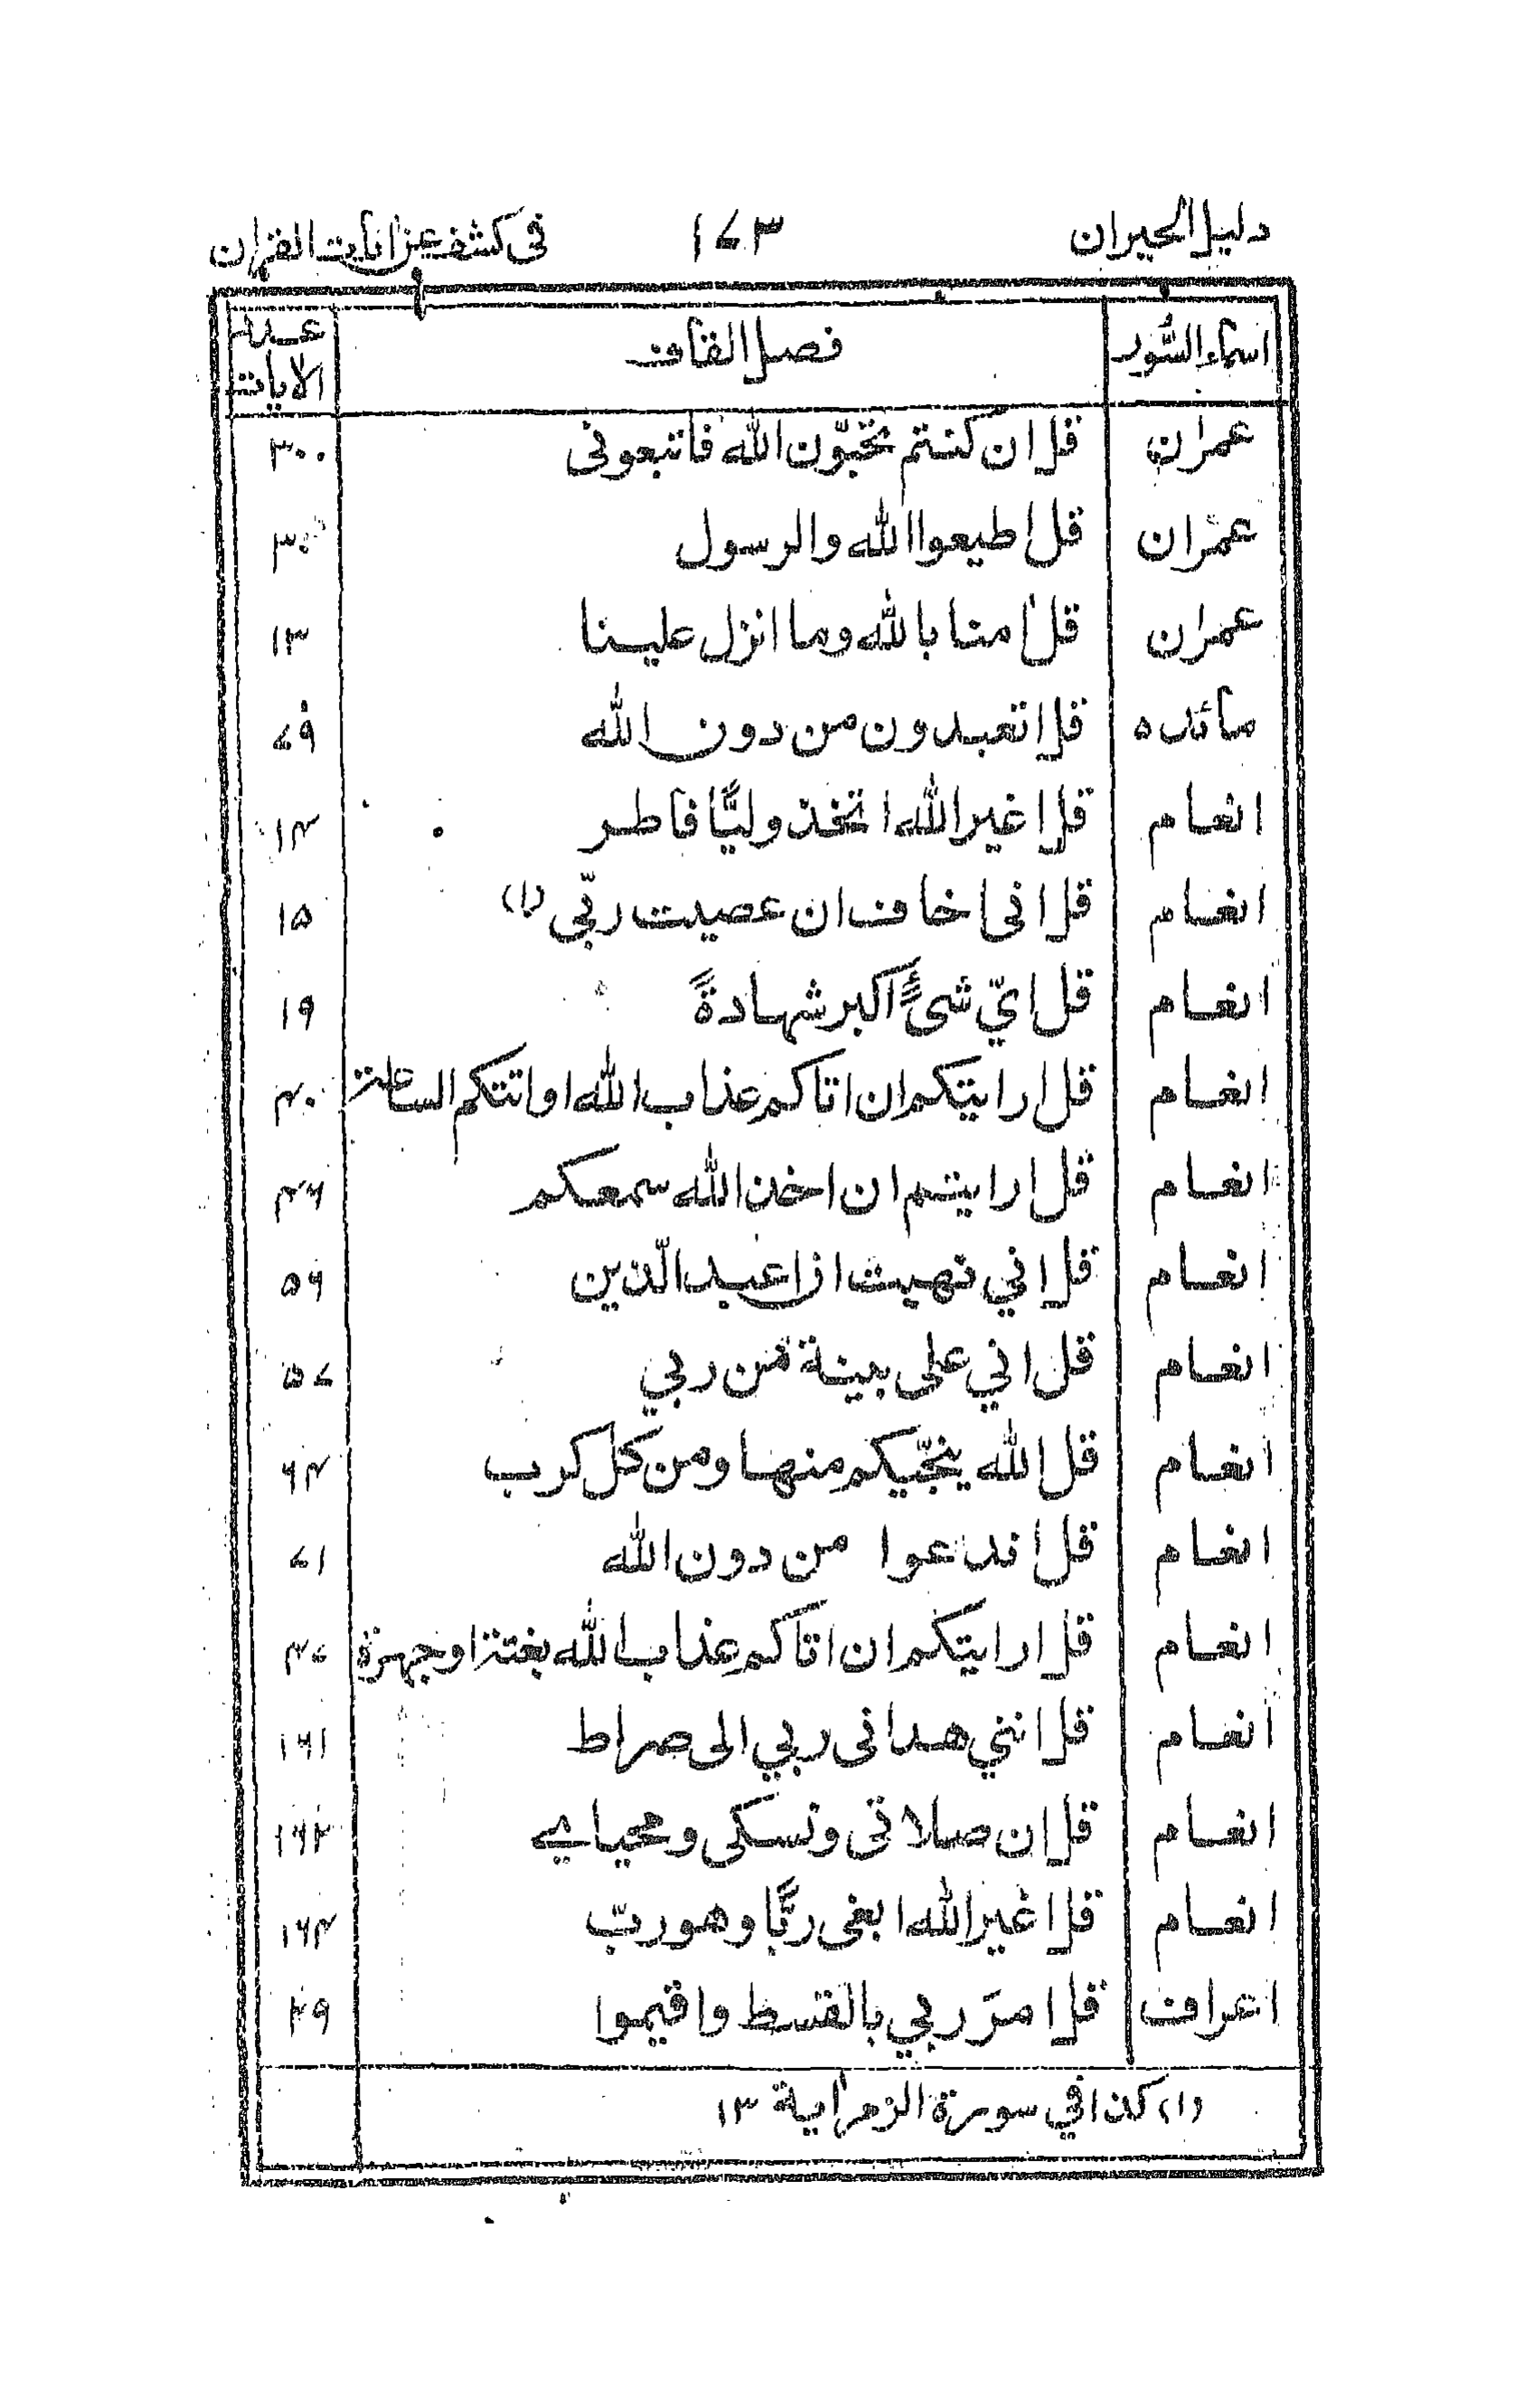 دليل الحيران ١٧٣ في كشف عن آيات القرآن
اسماء السّور فصل القاف عدد الايات
عمران قل ان كنتم تحبّون الله فاتبعونی ٣٠
عمران قل اطيعوا الله والرسول ٣٠
عمران قل امنا بالله وما انزل علينا ١٣
مائده قل اتعبدون من دون الله ٧٩
انعام قل اغير الله اتخذ وليًّا فاطر ١۴
انعام قل انی اخاف ان عصيت ربّي (١) ١۵
انعام قل ايّ شیءٍ اكبر شهادةً ١٩
انعام قل ارايتكم ان اتاكم عذاب الله او اتتكم الساعة ۴٠
انعام قل ارايتم ان اخذ الله سمعكم ۴۶
انعام قل اني نهيت ان اعبد الّذين ۵۶
انعام قل اني على بينة من ربي ۵٧
انعام قل الله ينجّيكم منها ومن كل كرب ۶۴
انعام قل اندعوا من دون الله ٧١
انعام قل ارايتكم ان اتاكم عذاب الله بغتة او جهرة ۴٧
انعام قل انني هدانی ربي الى صراط ١۶١
انعام قل ان صلاتی ونسكی ومحيای ١۶٢
انعام قل اغير الله ابغی ربًّا وهو ربّ ١۶۴
اعراف قل امرَ ربي بالقسط واقيموا ٢٩
(١) كذا في سورة الزمر اية ١٣